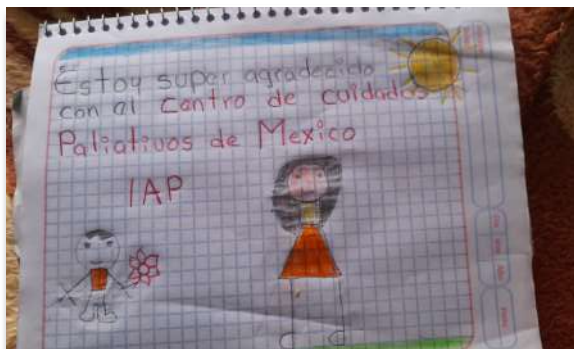 Estoy super agradecido
con al Centro de cuidados
Paliativos de Mexico
IAP